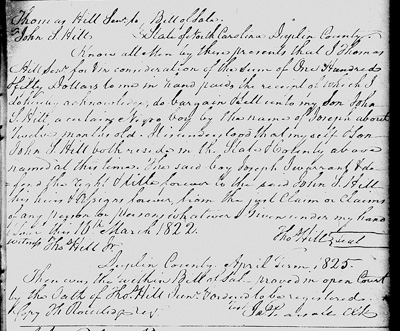 Thomas Hill Senr. to } Bill of Sale.
John S. Hill. } State of North Carolina Duplin County.
Know all Men by these presents that I Thomas
Hill Senr. for & in consideration of the Sum of One Hundred
& fifty Dollars to me in hand paid the receipt of which I
do bargain & Sell unto my Son John
S. Hill, a certain Negro boy by the name of Joseph about
Twelve months old. It is understood that my self & Son
John S. Hill both reside in the State & County above
named at this time. The said boy Joseph I warrant & de-
fend the right & title forever to the said John S. Hill
his heirs & Assigns forever from the just Claim or Claims
of any person or persons whatever. Given under my hand
& Seal this 16th March 1822.
Witness Thos. Hill Jr. Thos. Hill Seal
Duplin County. April Term 1825.
Then was the within Bill of Sale proved in open Court
by the Oath of Thos. Hill Junr. & ordered to be registered.
Copy